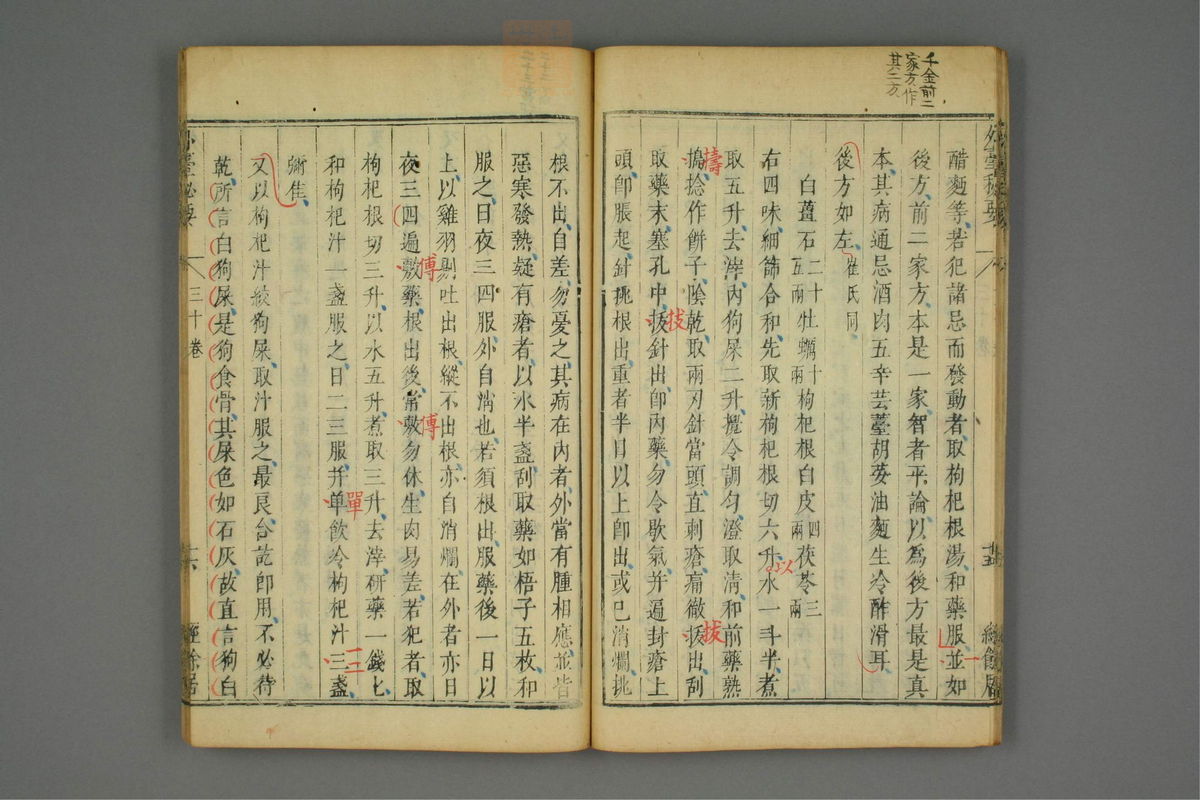 千金前二
家方作
其二方
外臺秘要 三十卷 經餘居
醋麵等若犯諸忌而發動者取枸杞根湯和藥服並如
後方前二家方本是一家智者平論以為後方最是真
本其病通忌酒肉五辛芸薹胡荽油麵生冷酢滑耳
後方如左崔氏同
白薑石二十五兩牡蠣十兩枸杞根白皮四兩茯苓三兩
右四味細篩合和先取新枸杞根切六升水一斗半煮
取五升去滓內狗屎二升攪令調勻澄取清和前藥熟
搗捻作餅子陰乾取兩刃針當頭直刺瘡痛徹拔出刮
取藥末塞孔中拔針出卽內藥勿令歇氣并遍封瘡上
頭卽脹起針挑根出重者半日以上卽出或已消爛挑
以
擣
拔
拔
根不出自差勿憂之其病在內者外當有腫相應並皆
惡寒發熱疑有瘡者以水半盞刮取藥如梧子五枚和
服之日夜三四服外自消也若須根出服藥後一日以
上以雞羽剔吐出根縱不出根亦自消爛在外者亦日
夜三四遍敷藥根出後常敷勿休生肉易差若犯者取
枸杞根切三升以水五升煮取三升去滓研藥一錢匕
和枸杞汁一盞服之日二三服并单飲冷枸杞汁三盞
彌隹
又以枸杞汁絞狗屎取汁服之最良合訖卽用不必待
乾所言白狗屎是狗食骨其屎色如石灰故直言狗白
傅
傅
單
一二
外臺秘要 三十卷 十六 經餘居